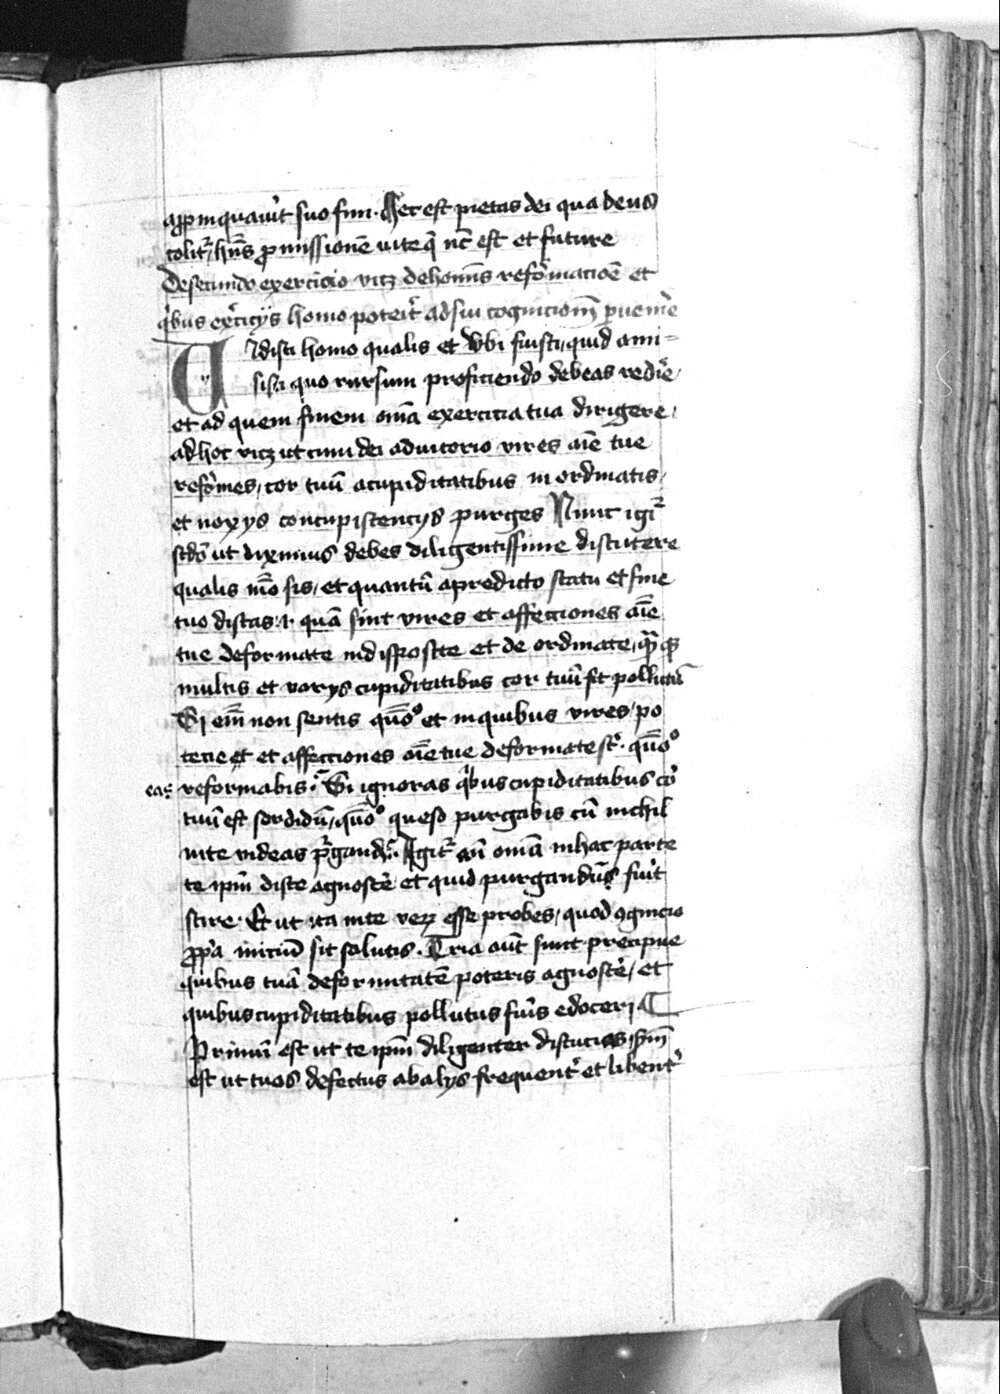 appinquauit suo fini. Hec est pietas dei qua deus
colit, hns pmissionē uite q̄ nc est et future
De secundo exercicio vicz de homīs reformacōe et
qibus exciciis homo poterit ad sui cognicionē puenire
Vidisti homo qualis et vbi fuisti, quid ami=
sisti quo rursum proficiendo debeas redire,
et ad quem finem oīa exercicia tua dirigere,
ad hoc vicz ut cum dei adiutorio vires aīe tue
reformes, cor tuū a cupiditatibus inordinatis,
et noxiis concupiscenciis purges Nunc igit
scdo ut diximus debes diligentissime discutere
qualis mo sis, et quantū a predicto statu et fine
tuo distas .i. quā sint vires et affectiones aīe
tue deformate indisposite et de ordinate, quā qz
multis et variis cupiditatibus cor tuū sit pollutū
Si em̄ non sentis quōo et in quibus vires, po
tencie et affectiones aīe tue deformate st. quōo
eas reformabis. Si ignoras qibus cupiditatibus cor
tuū est sordidū, quōo queso purgabis cū nichil
in te videas purgandū. Igit an oīa in hac parte
te ipm disce agnosce et quid purgandū fuit
scire. Et ut ita in te verz esse probes, quod cognicio
ppa iniciū sit salutis. Tria aut sunt precipue
quibus tuā deformitatē poteris agnosce, et
quibus cupiditatibus pollutus fuis edoceri
Primū est ut te ipm diligenter discucias, scdm
est ut tuos defectus ab aliis frequent et libent